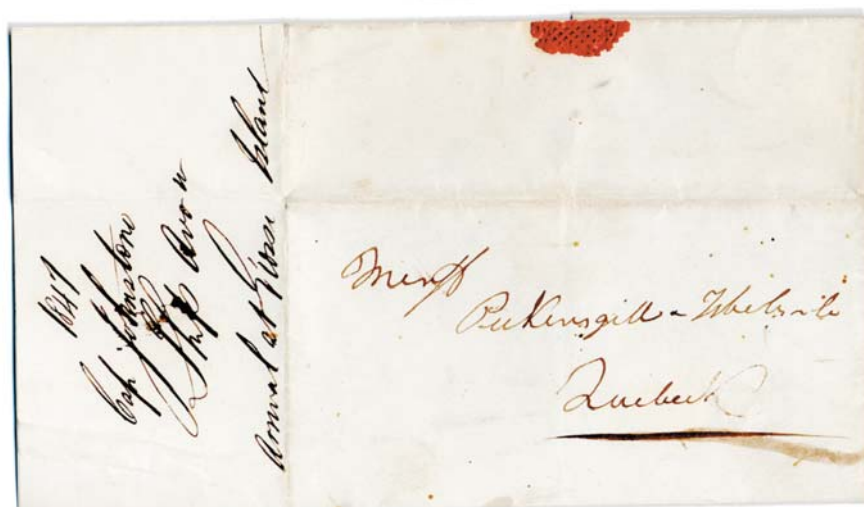 1847
Cap Johnstone
Ship Avon
Arrival at Grosse Island
Messrs
Pickersgill
Quebeck